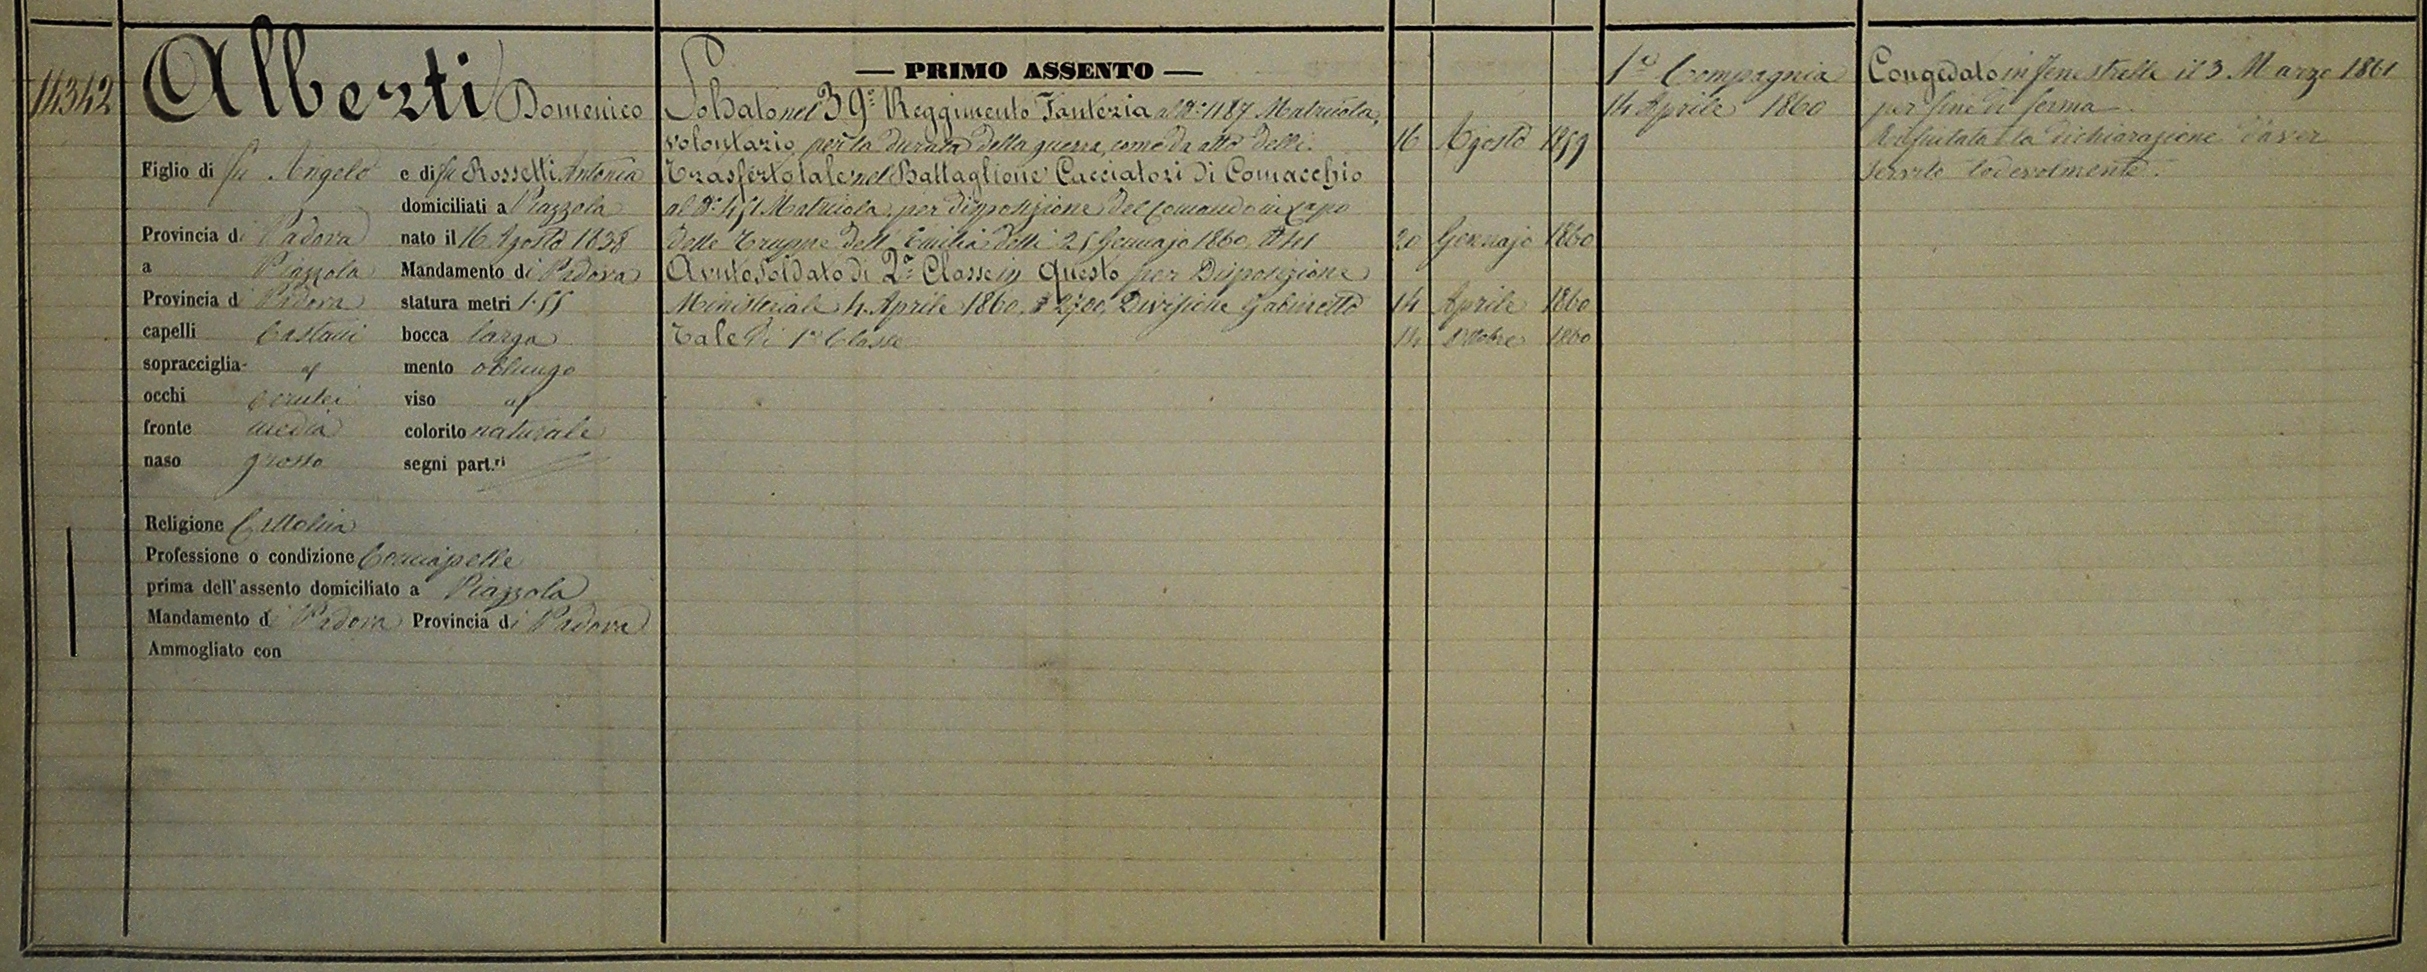 14342
Alberti Domenico
Figlio di fu Angelo e di fu Rossetti Antonia
domiciliati a Piazzola
Provincia di Padova nato il 16 Agosto 1838
a Piazzola Mandamento di Padova
Provincia di Padova statura metri 1.55
capelli Castani bocca larga
sopracciglia mento oblungo
occhi cerulei viso
fronte media colorito naturale
naso grosso segni part.ri
Religione Cattolica
Professione o condizione Conciapelle
prima dell'assento domiciliato a Piazzola
Mandamento di Padova Provincia di Padova
Ammogliato con
— PRIMO ASSENTO —
Soldato nel 39º Reggimento Fanteria al Nº 1187 Matricola,
volontario per la durata della guerra, come da atto delli. 16 Agosto 1859
Trasferto tale nel Battaglione Cacciatori di Comacchio
al Nº 451 Matricola per disposizione del Comando in Capo
delle Truppe dell'Emilia delli 25 Gennajo 1860 Nº 41 20 Gennajo 1860
Avuto Soldato di 2ª Classe in questo per Disposizione
Ministeriale 4 Aprile 1860 Nº 2700, Divisione Gabinetto 14 Aprile 1860
Tale di 1ª Classe 14 Ottobre 1860
1ª Compagnia
14 Aprile 1860
Congedato in Fenestrelle il 3 Marzo 1861
per fine di ferma.
la dichiarazione d'aver
servito lodevolmente.